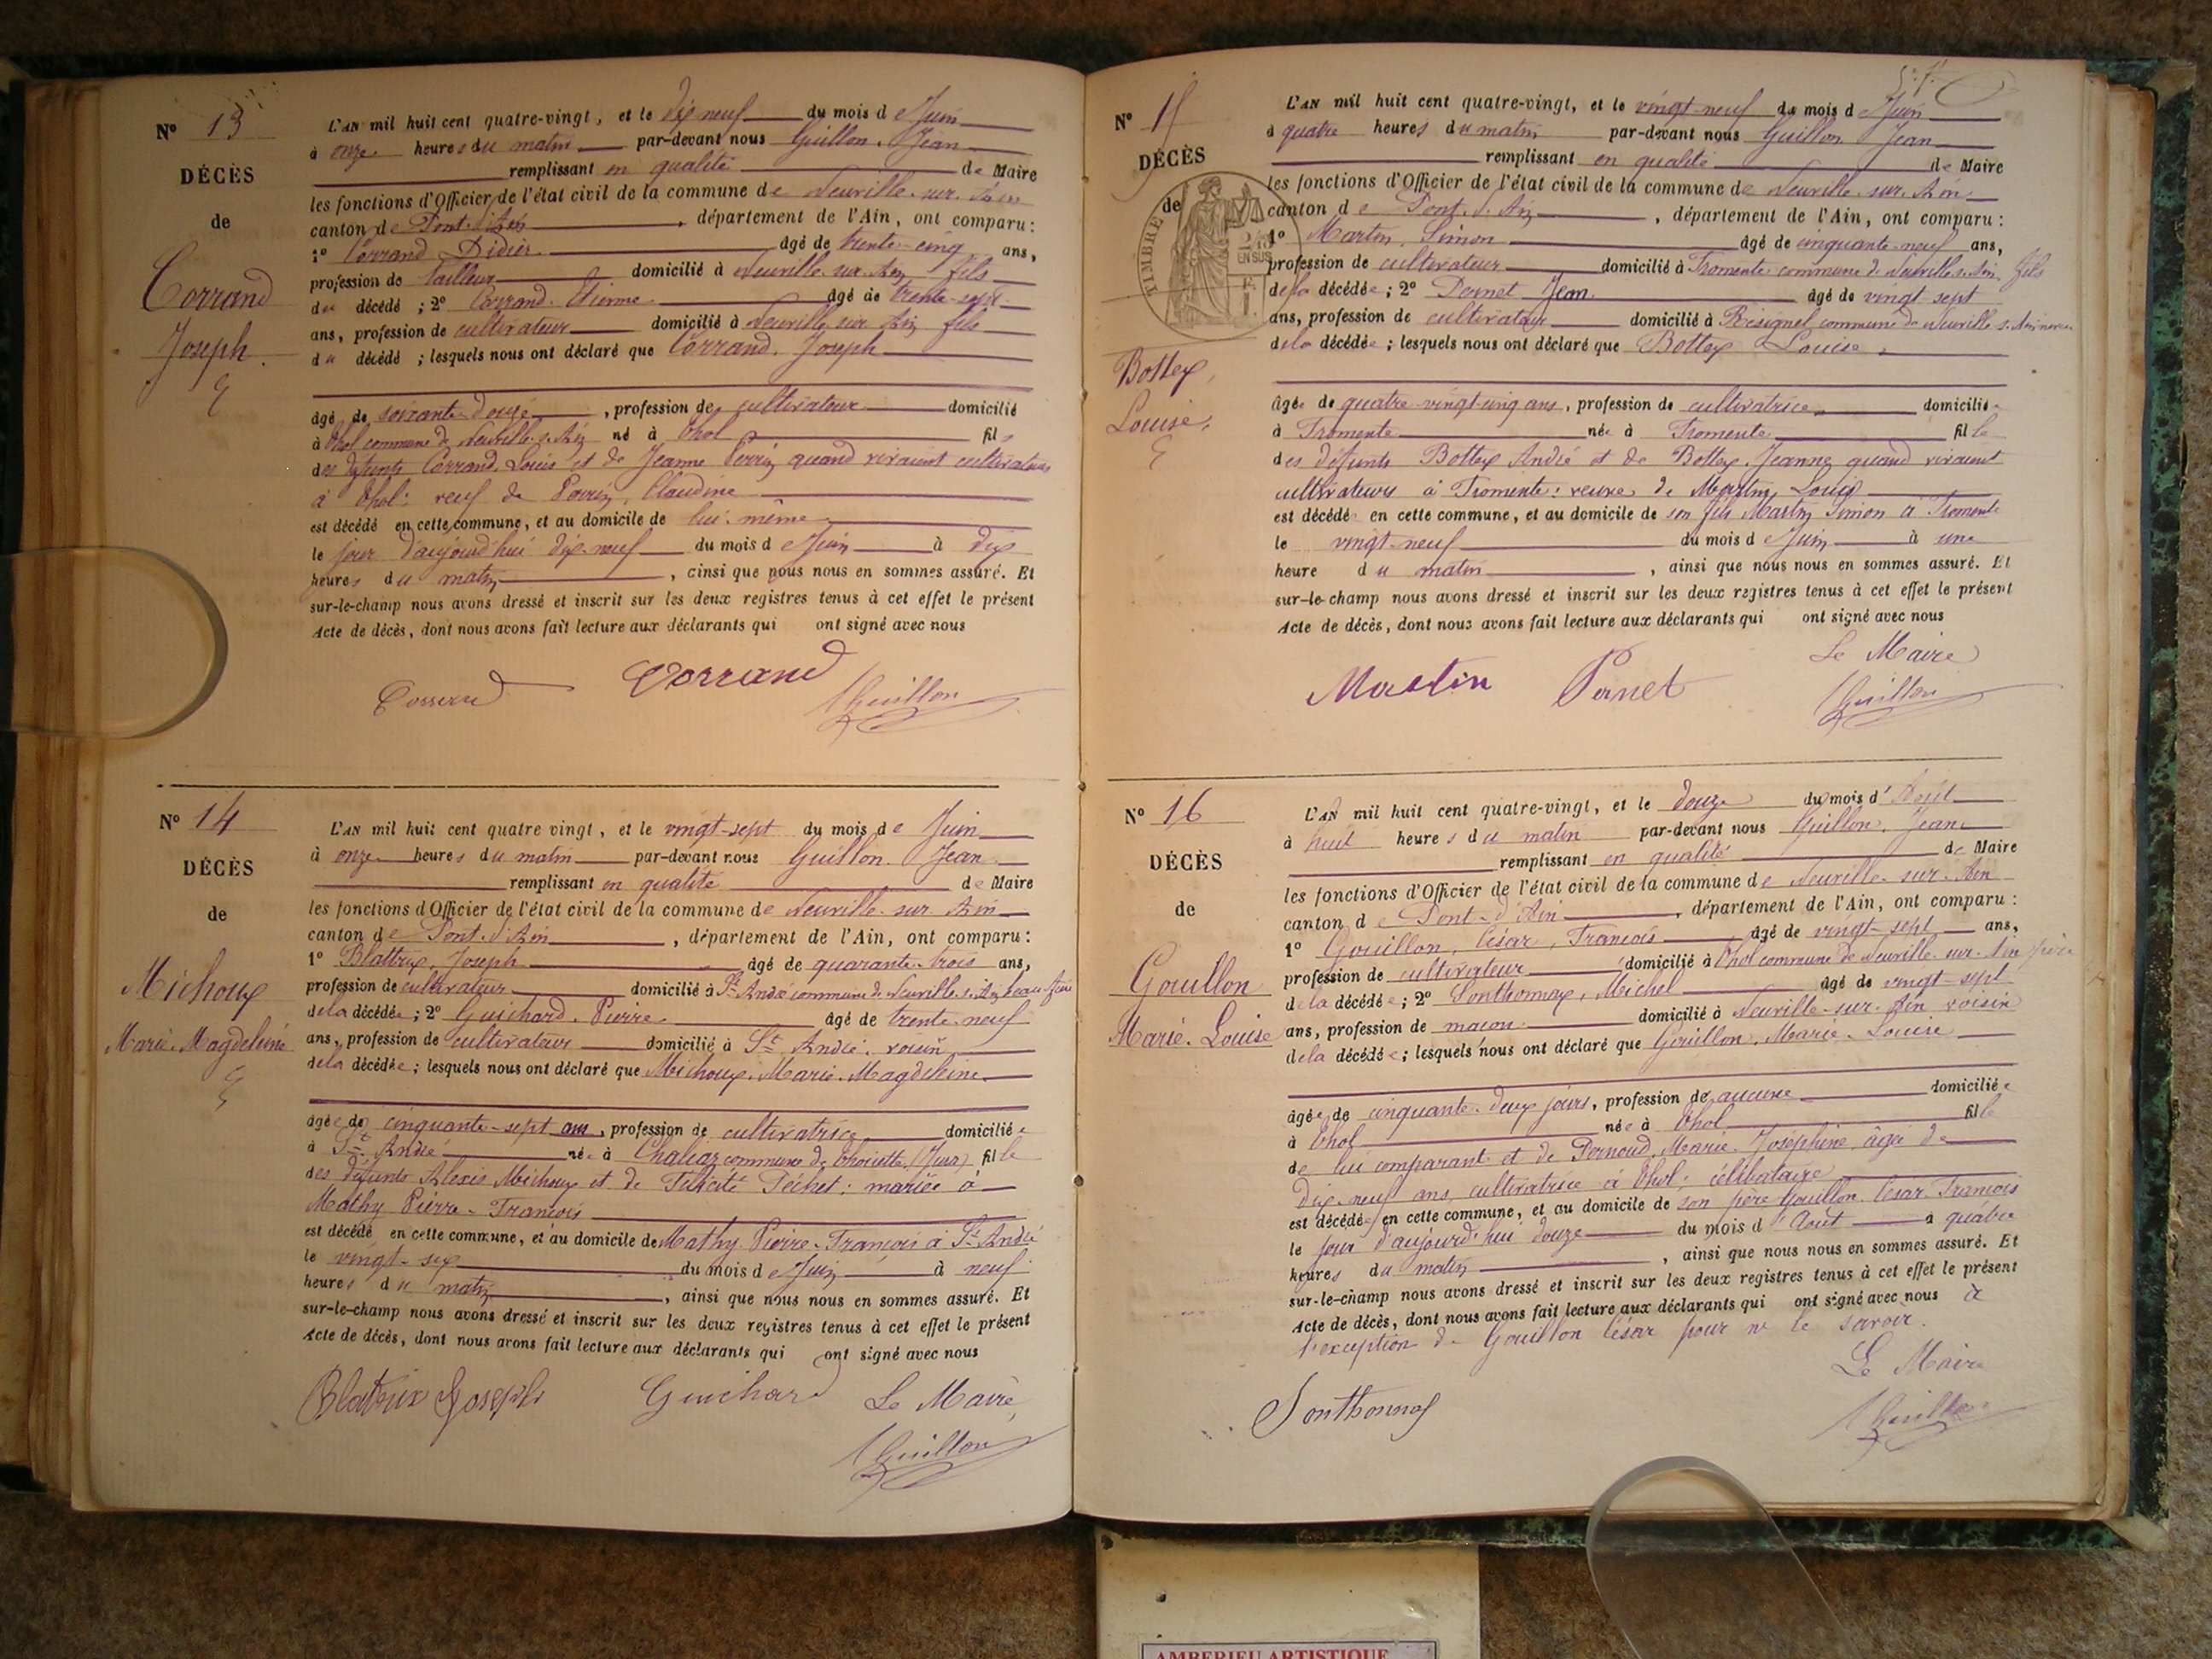 N° 13
DÉCÈS
de
Corrand
Joseph.
L'AN mil huit cent quatre-vingt, et le dix neuf du mois de Juin
à onze heures du matin par-devant nous Guillon, Jean
remplissant en qualité de Maire
les fonctions d'Officier de l'état civil de la commune de Neuville-sur-Ain
canton de Pont-d'Ain, département de l'Ain, ont comparu:
1° Corrand Didier âgé de trente-cinq ans,
profession de tailleur domicilié à Neuville-sur-Ain fils
du décédé; 2° Corrand Etienne âgé de trente-sept
ans, profession de cultivateur domicilié à Neuville sur Ain fils
du décédé; lesquels nous ont déclaré que Corrand, Joseph
âgé de soixante-douze, profession de cultivateur domicilié
à Thol commune de Neuville s. Ain né à Thol fils
des défunts Corrand Louis et de Jeanne Perrin quand vivaient cultivateurs
à Thol: veuf de Perrin, Claudine
est décédé en cette commune, et au domicile de lui-même
le jour d'aujourd'hui dix-neuf du mois de Juin à dix
heures du matin, ainsi que nous nous en sommes assuré. Et
sur-le-champ nous avons dressé et inscrit sur les deux registres tenus à cet effet le présent
Acte de décès, dont nous avons fait lecture aux déclarants qui ont signé avec nous
Corrand Corrand Guillon
N° 14
DÉCÈS
de
Michoux
Marie-Magdeleine
L'AN mil huit cent quatre vingt, et le vingt-sept du mois de Juin
à onze heures du matin par-devant nous Guillon Jean
remplissant en qualité de Maire
les fonctions d'Officier de l'état civil de la commune de Neuville-sur-Ain
canton de Pont-d'Ain, département de l'Ain, ont comparu:
1° Blattrix, Joseph âgé de quarante-trois ans,
profession de cultivateur domicilié à St André commune de Neuville s. Ain beau frère
de la décédée; 2° Guichard, Pierre âgé de trente-neuf
ans, profession de cultivateur domicilié à St André, voisin
de la décédée; lesquels nous ont déclaré que Michoux, Marie-Magdeleine
âgée de cinquante-sept ans, profession de cultivatrice domiciliée
à St André née à commune de Thoirette (Jura) fille
des défunts Alexis Michoux et de Félicité Péchet; mariée à
Mathy Pierre-François
est décédé en cette commune, et au domicile de Mathy Pierre-François à St André
le vingt-six du mois de Juin à neuf
heures du matin, ainsi que nous nous en sommes assuré. Et
sur-le-champ nous avons dressé et inscrit sur les deux registres tenus à cet effet le présent
Acte de décès, dont nous avons fait lecture aux déclarants qui ont signé avec nous
Blatrix Joseph Guichard Le Maire,
Guillon
N° 15
DÉCÈS
de
TIMBRE
2/10 EN SUS
Bottex,
Louise,
L'AN mil huit cent quatre-vingt, et le vingt-neuf du mois de Juin
à quatre heures du matin par-devant nous Guillon Jean
remplissant en qualité de Maire
les fonctions d'Officier de l'état civil de la commune de Neuville-sur-Ain
canton de Pont-d'Ain, département de l'Ain, ont comparu:
1° Martin, Simon âgé de cinquante-neuf ans,
profession de cultivateur domicilié à Fromente commune de Neuville s. Ain, fils
de la décédée; 2° Pernet Jean âgé de vingt sept
ans, profession de cultivateur domicilié à Résignel commune de Neuville s. Ain neveu
de la décédée; lesquels nous ont déclaré que Bottex Louise,
âgée de quatre-vingt-cinq ans, profession de cultivatrice domiciliée
à Fromente née à Fromente fille
des défunts Bottex André et de Bottex Jeanne quand vivaient
cultivateurs à Fromente: veuve de Martin Louis
est décédé en cette commune, et au domicile de son fils Martin Simon à Fromente
le vingt-neuf du mois de Juin à une
heure du matin, ainsi que nous nous en sommes assuré. Et
sur-le-champ nous avons dressé et inscrit sur les deux registres tenus à cet effet le présent
Acte de décès, dont nous avons fait lecture aux déclarants qui ont signé avec nous
Le Maire
Martin Pernet Guillon
N° 16
DÉCÈS
de
Gouillon
Marie-Louise
L'AN mil huit cent quatre-vingt, et le douze du mois d'Août
à huit heures du matin par-devant nous Guillon, Jean
remplissant en qualité de Maire
les fonctions d'Officier de l'état civil de la commune de Neuville-sur-Ain
canton de Pont-d'Ain, département de l'Ain, ont comparu:
1° Gouillon, César, François âgé de vingt-sept ans,
profession de cultivateur domicilié à Thol commune de Neuville-sur-Ain père
de la décédée; 2° Sonthonnax, Michel âgé de vingt-sept
ans, profession de maçon domicilié à Neuville-sur-Ain voisin
de la décédée; lesquels nous ont déclaré que Gouillon, Marie-Louise
âgée de cinquante-deux jours, profession de aucune domiciliée
à Thol née à Thol fille
de lui comparant et de Pernoud, Marie-Joséphine, âgée de
dix-neuf ans, cultivatrice à Thol; célibataire
est décédée en cette commune, et au domicile de son père Gouillon César-François
le jour d'aujourd'hui douze du mois d'Août à quatre
heures du matin, ainsi que nous nous en sommes assuré. Et
sur-le-champ nous avons dressé et inscrit sur les deux registres tenus à cet effet le présent
Acte de décès, dont nous avons fait lecture aux déclarants qui ont signé avec nous à
l'exception de Gouillon César pour ne le savoir.
Le Maire
Sonthonnax Guillon
AMBERIEU ARTISTIQUE